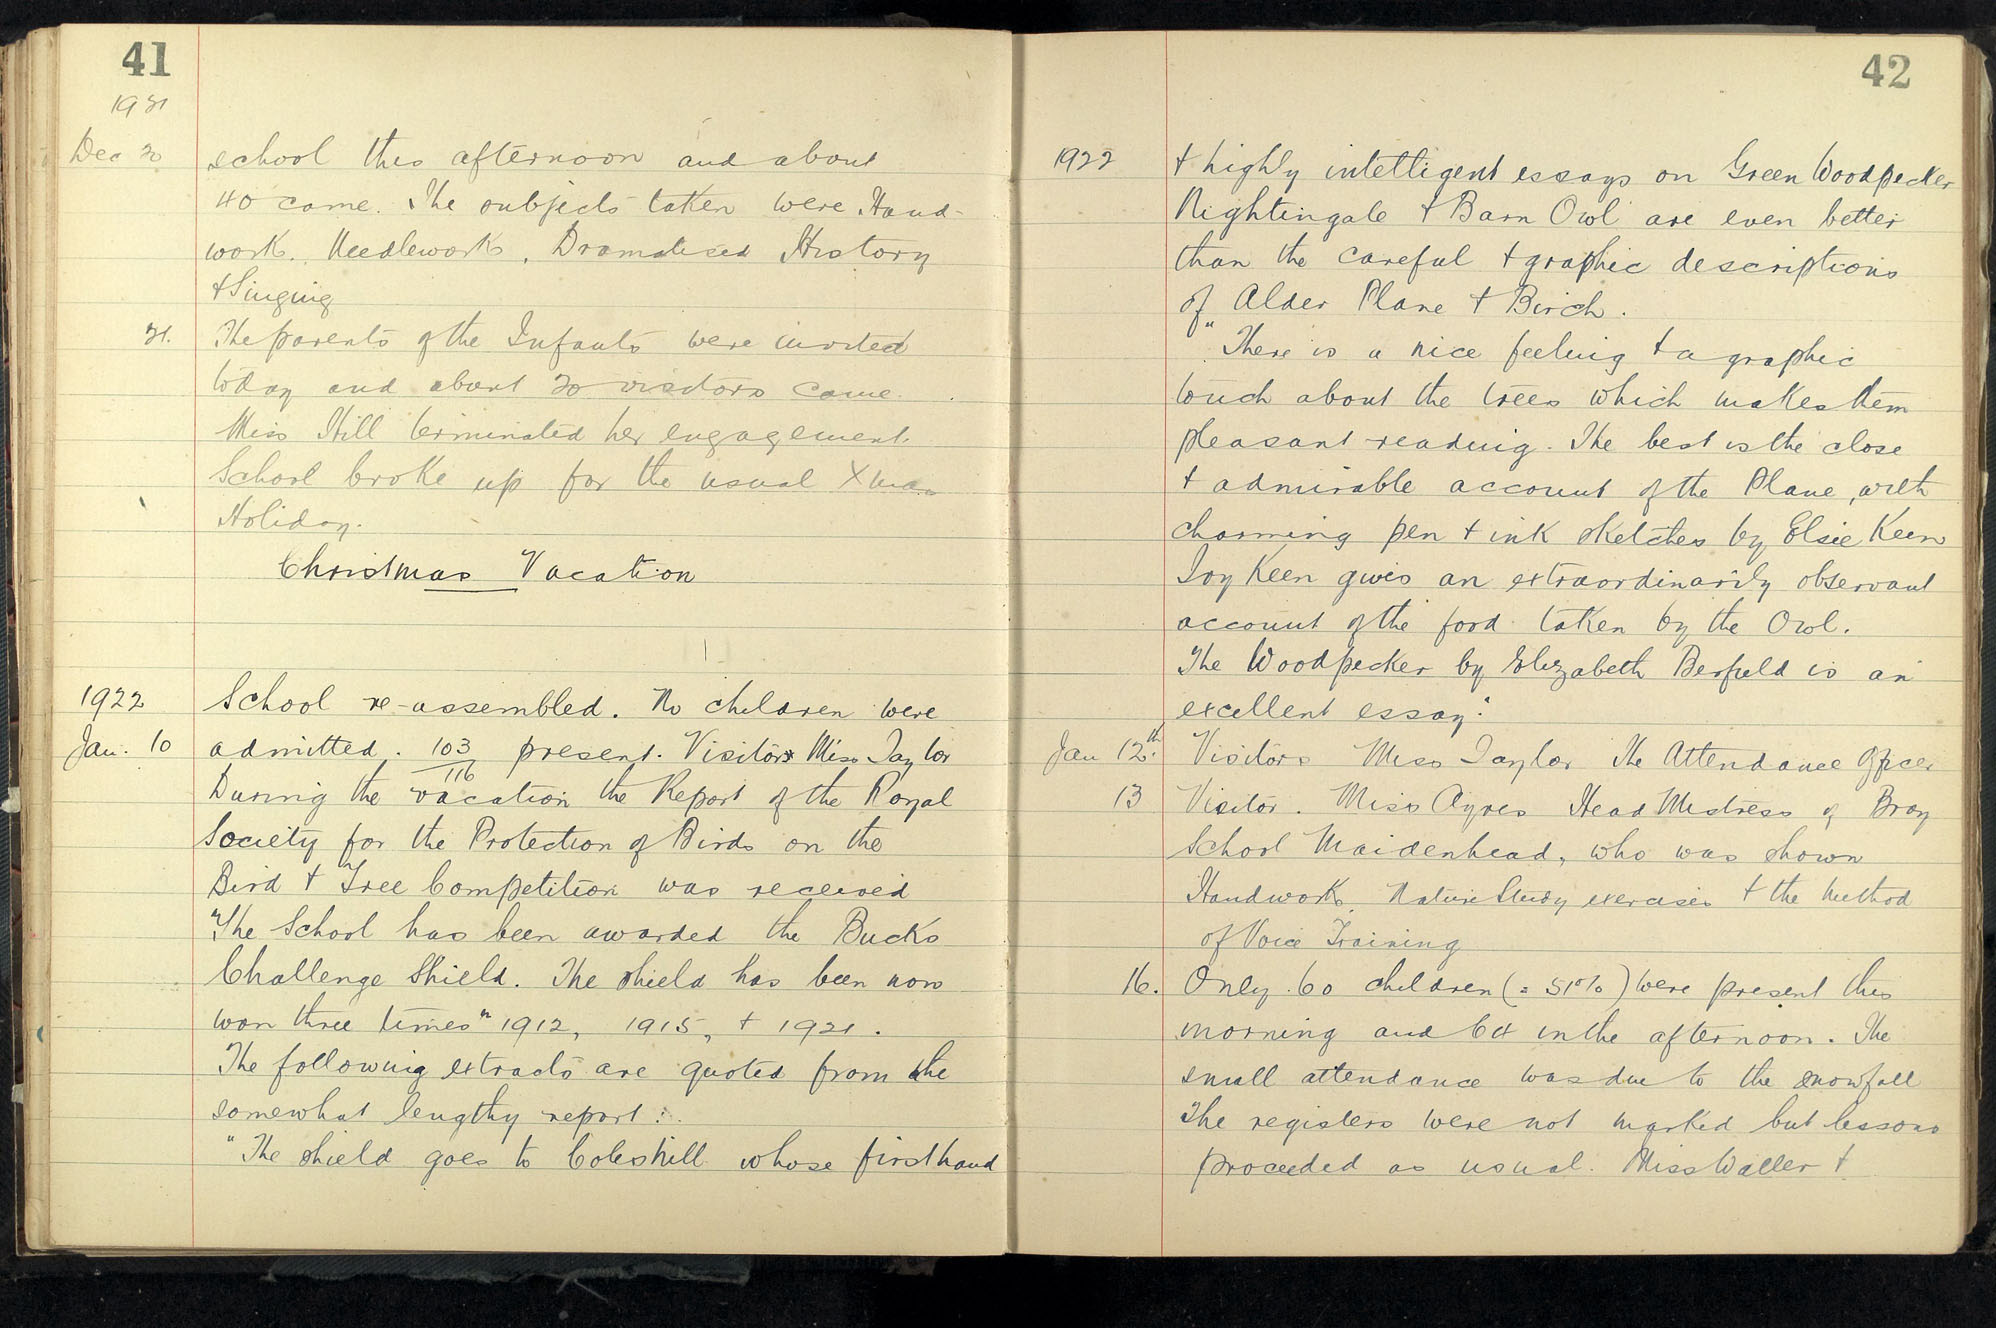 41
1921
Dec 20 school this afternoon and about
40 came. The subjects taken were Hand-
work, Needlework, Dramatised History
+ Singing
21. The parents of the Infants were invited
today and about 20 visitors came.
Miss Hill terminated her engagement.
School broke up for the usual Xmas
Holiday.
Christmas Vacation
1922 School re-assembled. No children were
Jan. 10 admitted. 103/116 present. Visitor Miss Taylor
During the vacation the Report of the Royal
Society for the Protection of Birds on the
Bird + Tree Competition was received
"The School has been awarded the Bucks
Challenge Shield. The shield has been now
won three times" 1912, 1915, + 1921.
The following extracts are quoted from the
somewhat lengthy report:
"The shield goes to Coleshill whose firsthand
42
1922 + highly intelligent essays on Green Woodpecker
Nightingale + Barn Owl are even better
than the careful + graphic descriptions
of Alder Plane + Birch.
"There is a nice feeling + a graphic
touch about the trees which makes them
pleasant reading. The best is the close
+ admirable account of the Plane, with
charming pen + ink sketches by Elsie Keen
Joy Keen gives an extraordinarily observant
account of the food taken by the Owl.
The Woodpecker by Elizabeth is an
excellent essay."
Jan 12th. Visitors Miss Taylor The Attendance Officer
13 Visitor. Miss Ayres Head Mistress of Bray
School Maidenhead, who was shown
Handwork, Nature Study exercises + the method
of Voice Training
16. Only 60 children (= 51%) were present this
morning and 64 in the afternoon. The
small attendance was due to the snowfall
The registers were not marked but lessons
proceeded as usual. Miss Waller +